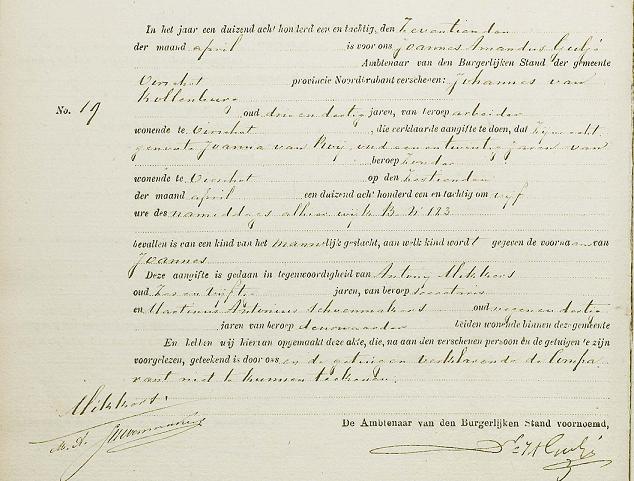 In het jaar een duizend acht honderd een en tachtig, den Zeventienden
der maand april is voor ons Joannes Amandus
Ambtenaar van den Burgerlijken Stand der gemeente
Oirschot provincie Noordbrabant verschenen: Johannes van
Kollenburg
No. 19 oud drie en dertig jaren, van beroep arbeider
wonende te Oirschot, die verklaarde aangifte te doen, dat Zijne echt
genoote Joanna van Roij, oud een en twintig jaren van
beroep Zonder
wonende te Oirschot op den Zestienden
der maand april een duizend acht honderd een en tachtig om vijf
ure des namiddags alhier wijk B. N° 123
bevallen is van een kind van het mannelijk geslacht, aan welk kind wordt gegeven de voornaam van
Joannes
Deze aangifte is gedaan in tegenwoordigheid van Antony
oud Zes en vijftig jaren, van beroep secretaris
en Martinus Antonius oud vier en dertig
jaren van beroep deurwaarder beiden wonende binnen deze gemeente
En hebben wij hiervan opgemaakt deze akte, die, na aan den verschenen persoon en de getuigen te zijn
voorgelezen, geteekend is door ons en de getuigen verklarende de Compa
rant niet te kunnen teekenen.
De Ambtenaar van den Burgerlijken Stand voornoemd,